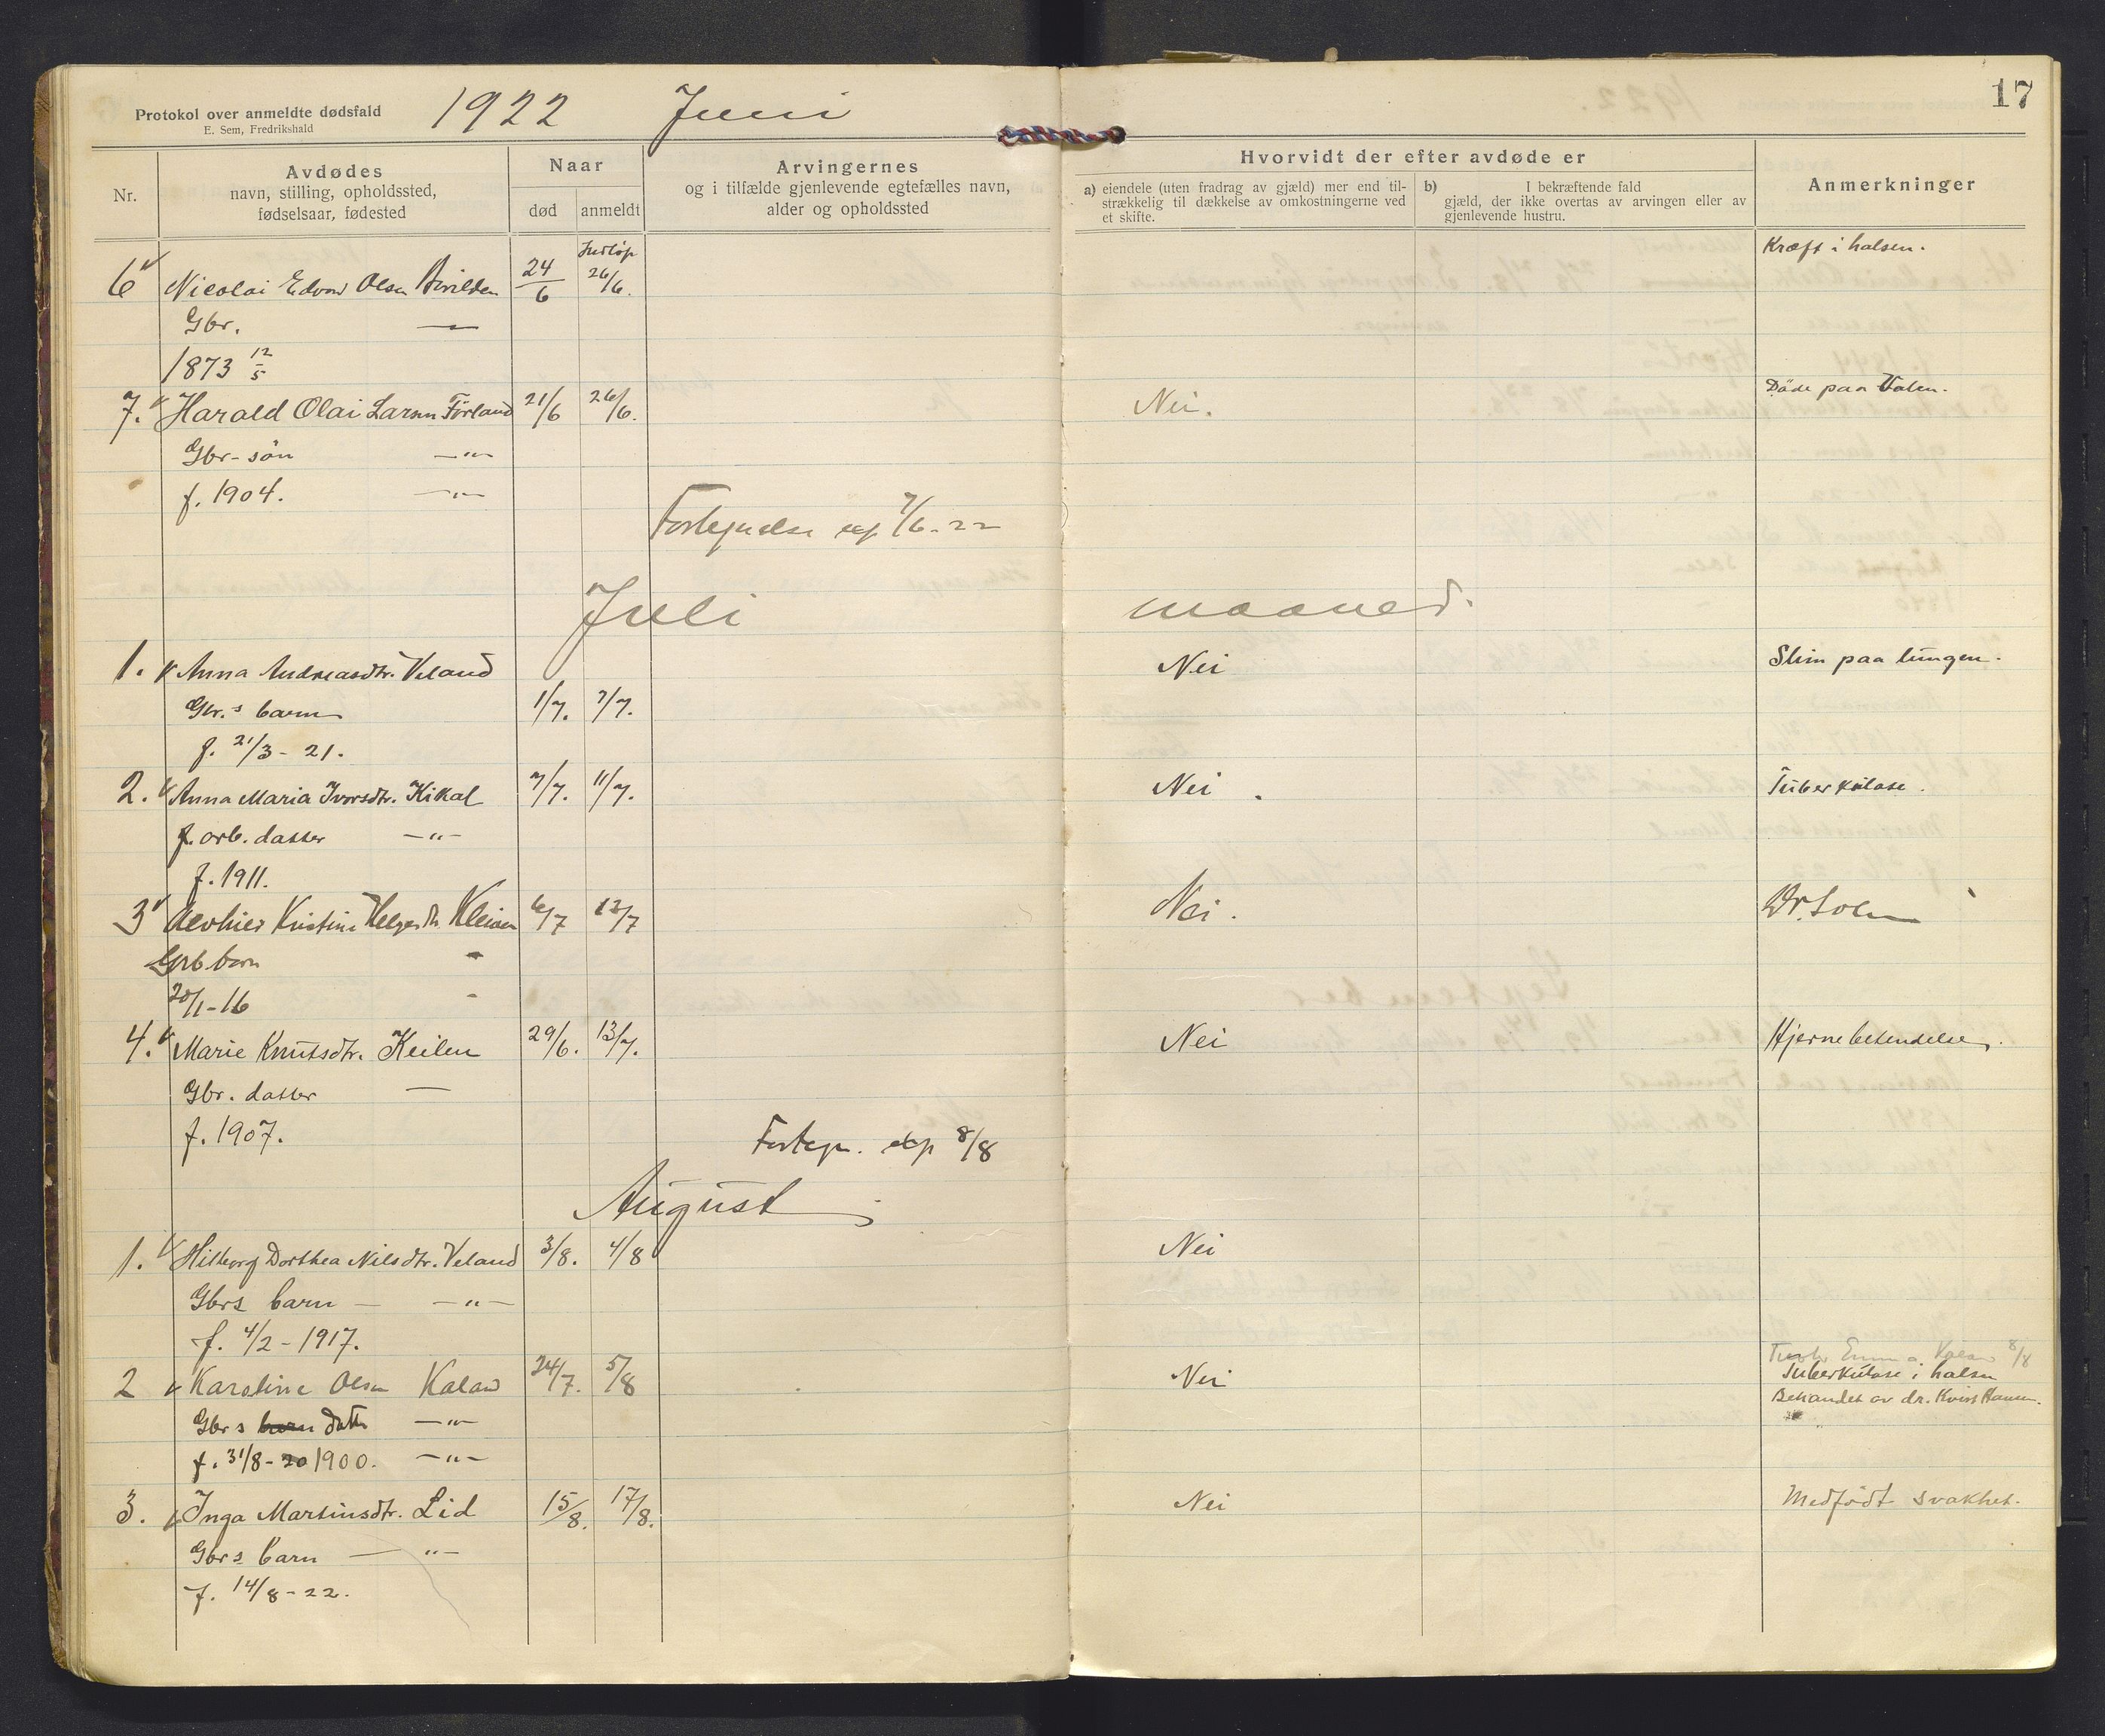 Protokol over anmeldte dødsfald
E. Sem, Fredrikshald
1922 Juni
17
Nr.
Avdødes
navn, stilling, opholdssted,
fødselsaar, fødested
Naar
død
anmeldt
Arvingernes
og i tilfælde gjenlevende egtefælles navn,
alder og opholdssted
Hvorvidt der efter avdøde er
a) eiendele (uten fradrag av gjæld) mer end til-
strækkelig til dækkelse av omkostningerne ved
et skifte.
b) I bekræftende fald
gjæld, der ikke overtas av arvingen eller av
gjenlevende hustru.
Anmerkninger
6 Nicolai Edvard Olsen 24/6 26/6. Kræft i halsen.
Gbr. —
1873 12/5
7. Harald Olai Larsen Förland 21/6 26/6. Nei. Döde paa Valen.
Gbr-sön —"—
f. 1904. —"—
Fortegnelse exp 7/6-22
Juli maaned.
1. Anna Andreasdtr. Veland Nei Slim paa lungen.
Gbr.s barn 1/7. 7/7.
f. 21/3-21.
2. Anna Maria Ivarsdtr. Kikal 7/7. 11/7. Nei. Tuberkulose.
f. arb. datter —"—
f. 1911.
3 Kristine Kleiven 6/7 12/7 Nei. Dr.
barn
20/1-16
4. Marie Knutsdtr. Keilen 29/6. 13/7. Nei Hjernebetendelse.
Gbr. datter —
f. 1907.
Fortegn. exp 8/8
August
1. Hilborg Dorthea Nilsdtr. Veland 3/8. 4/8 Nei
Gbrs barn — —"—
f. 4/2-1917.
2 Karoline Olsen 24/7. 5/8 Nei 8/8
Tuberkulose i halsen
Gbrs barn datter —"— Behandlet av dr. Kvist Hansen.
f. 31/8-20 1900. —"—
3. Inga Martinsdtr. Lid 15/8. 17/8. Nei Medfödt svakhet.
Gbrs barn —"—
f. 14/8-22.